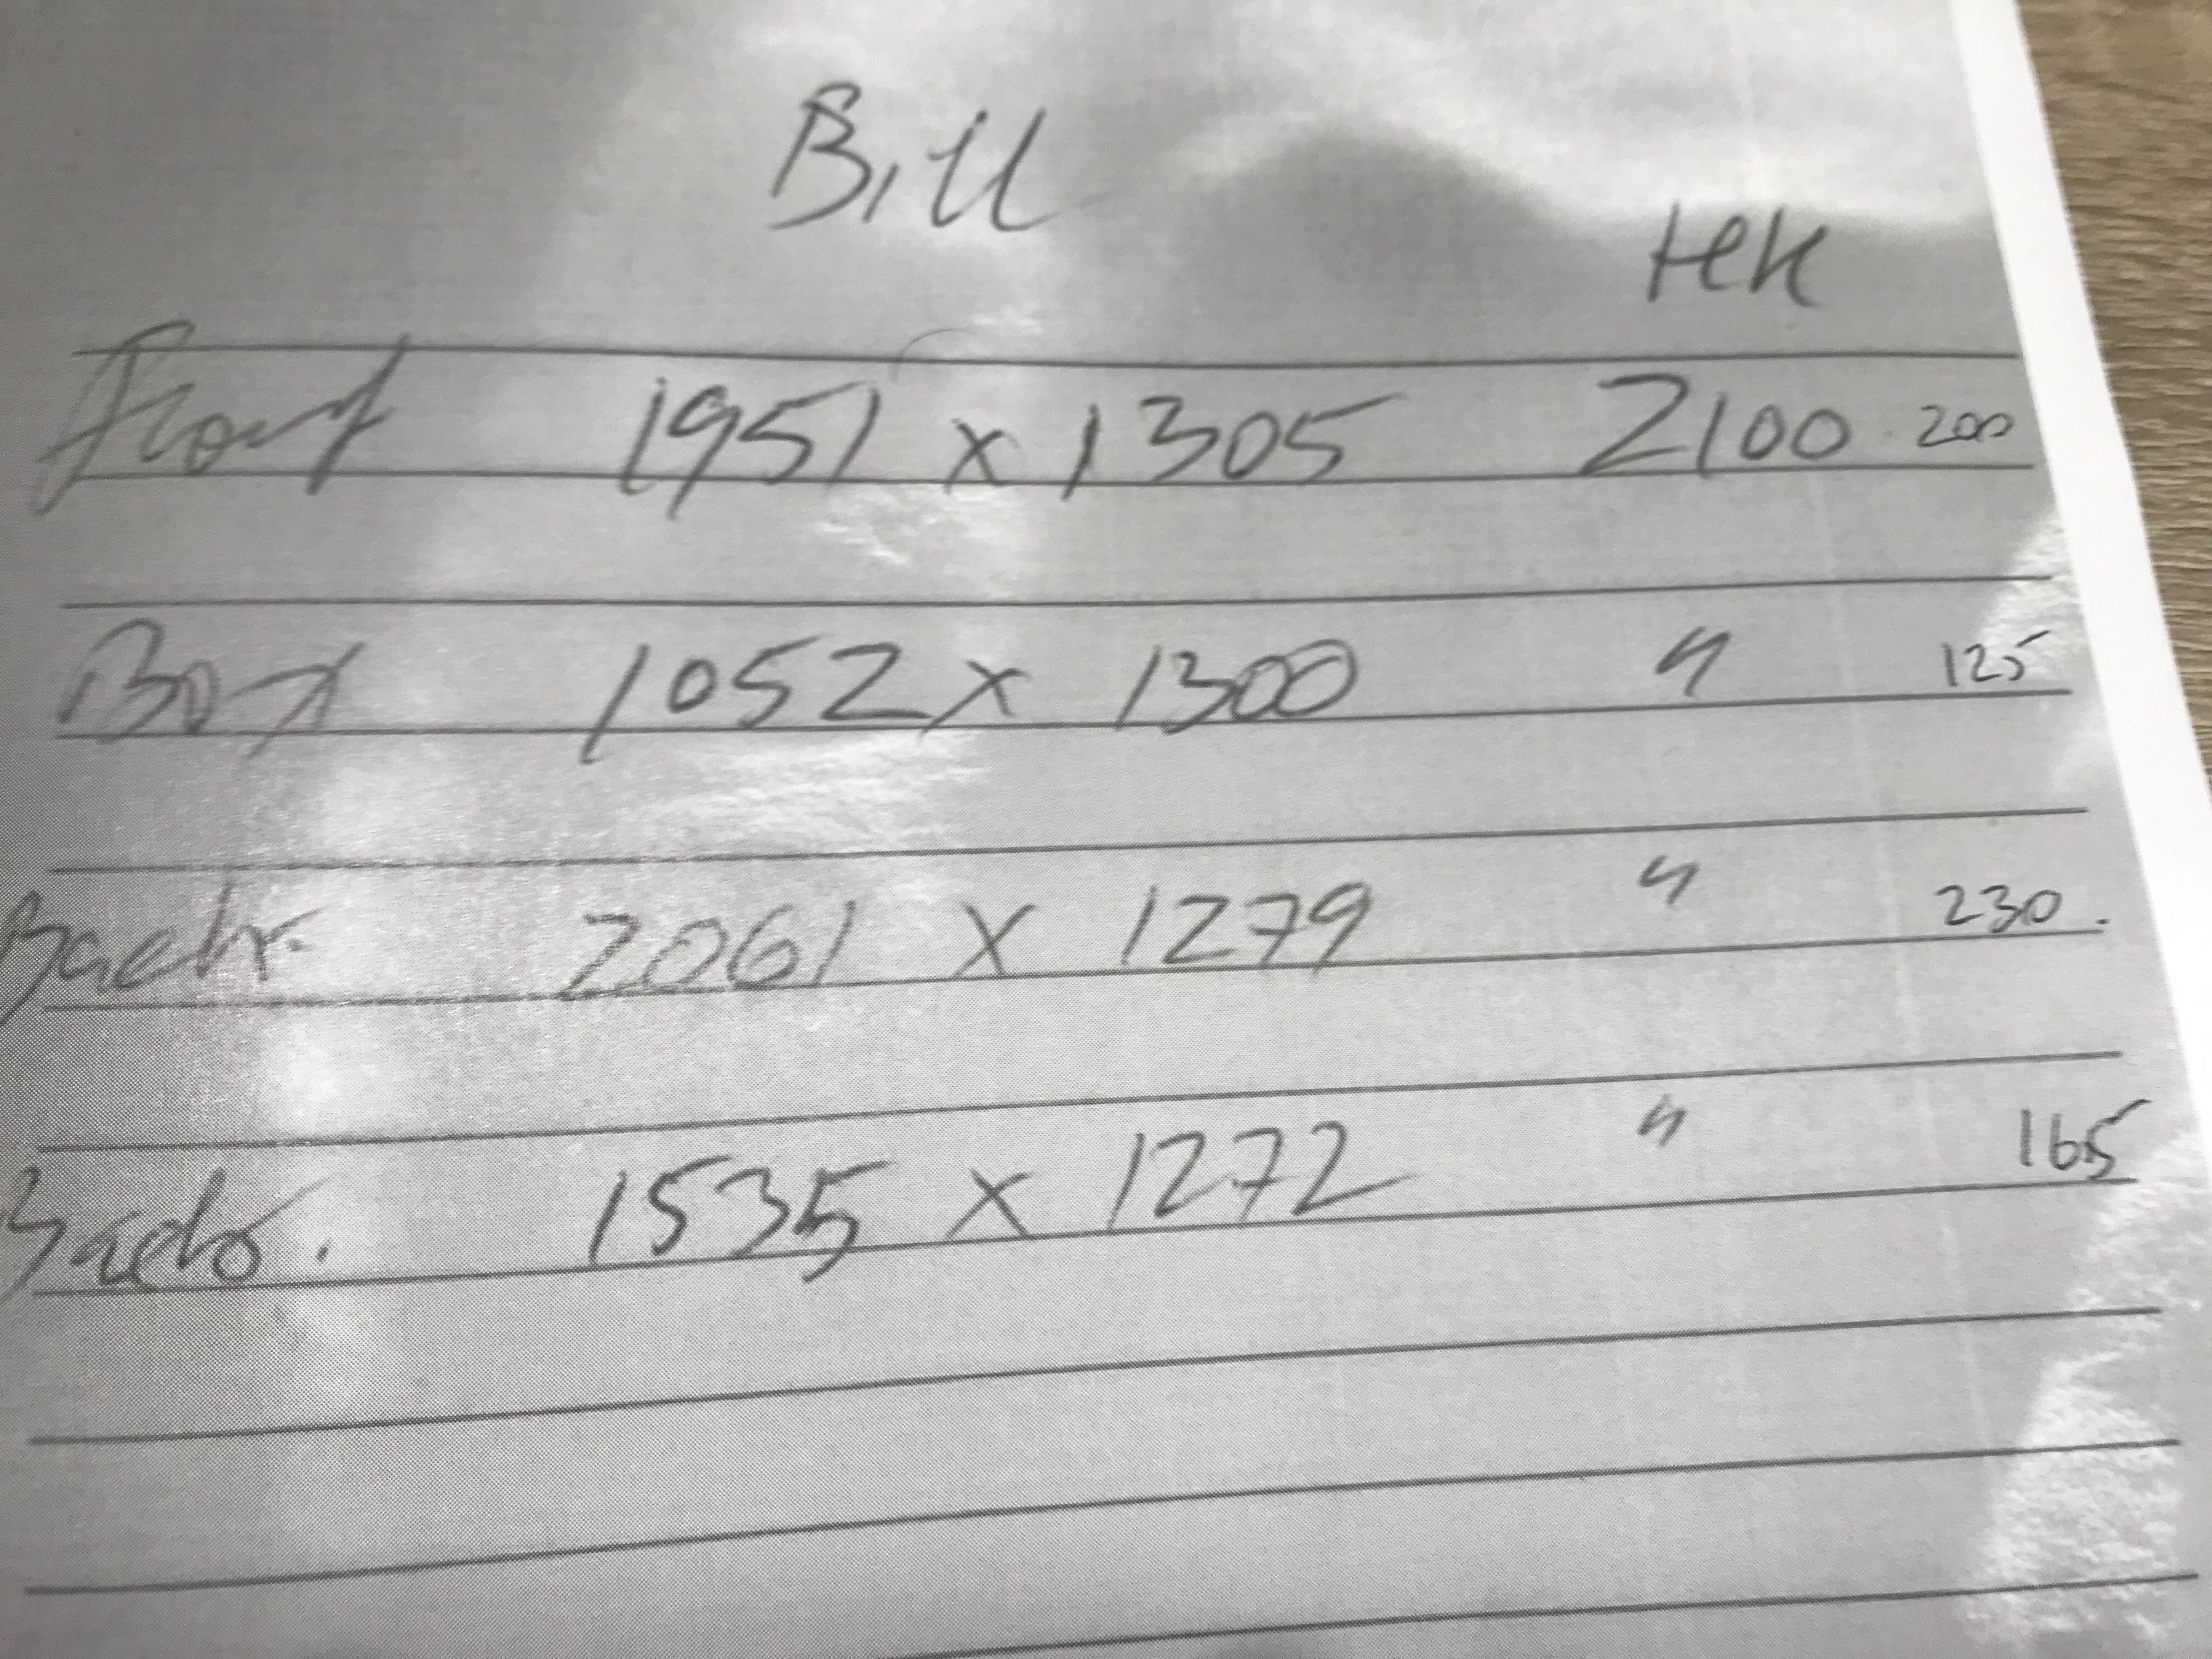 Bill
Front 1951 x 1305 2100 200
Box 1052 x 1300 " 125
2061 x 1279 " 230.
1535 x 1272 " 165